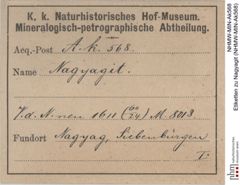 K. k. Naturhistorisches Hof-Museum.
Mineralogisch-petrographische Abtheilung.
Acq.-Post A.k. 568.
Name Nagyagit.
V.d. N. nen 1611 (60/24) M. 8013
Fundort Nagyag, Siebenbürgen
T.
NHMW-MIN-Ak568
Etiketten zu Nagyagit (NHMW-MIN-Ak568)